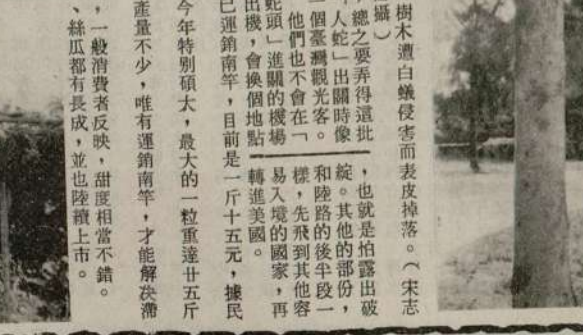 樹木遭白蟻侵害而表皮掉落。（宋志
攝）
，總之要弄得這批
人蛇」出關時像
一個臺灣觀光客。
他們也不會在「
蛇頭」進關的機場
出機，會換個地點
，也就是怕露出破
綻。其他的部份，
和陸路的後半段一
樣，先飛到其他容
易入境的國家，再
轉進美國。
已運銷南竿，目前是一斤十五元，據民
今年特別碩大，最大的一粒重達廿五斤
產量不少，唯有運銷南竿，才能解決滯
，一般消費者反映，甜度相當不錯。
、絲瓜都有長成，並也陸續上市。